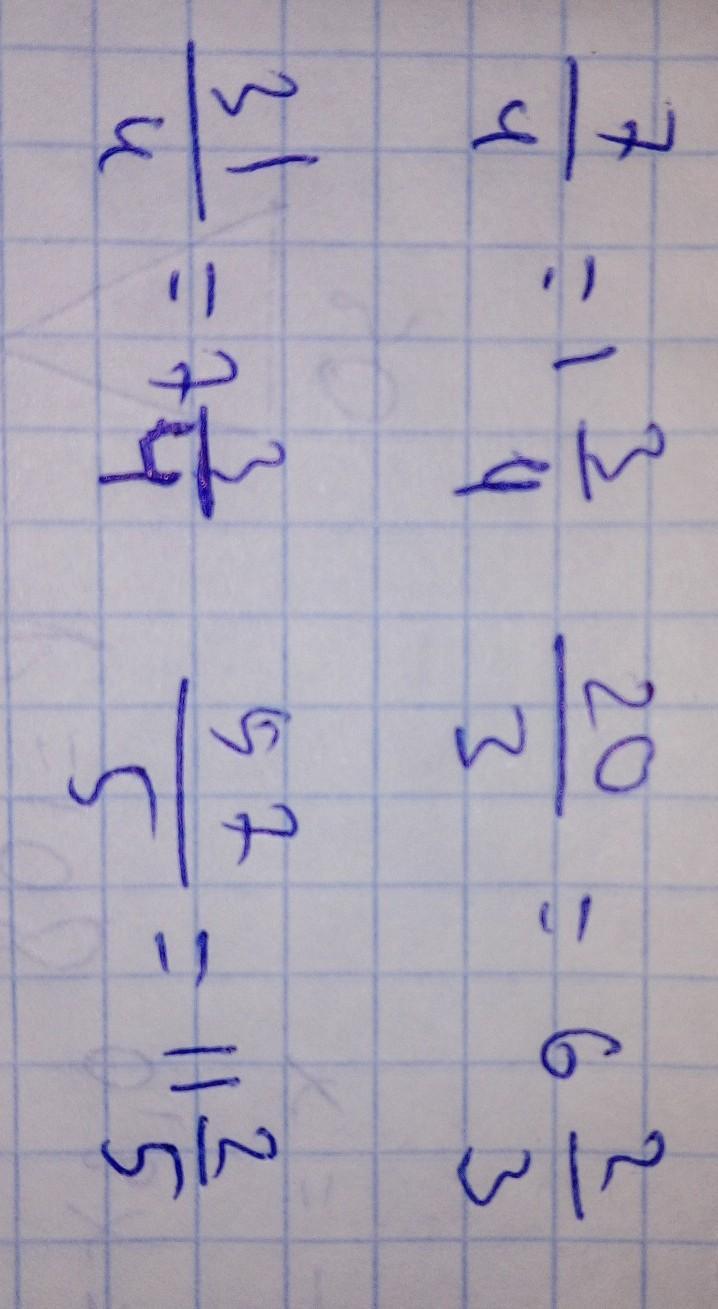 7/4 = 1 3/4 20/3 = 6 2/3
31/4 = 7 3/4 57/5 = 11 2/5